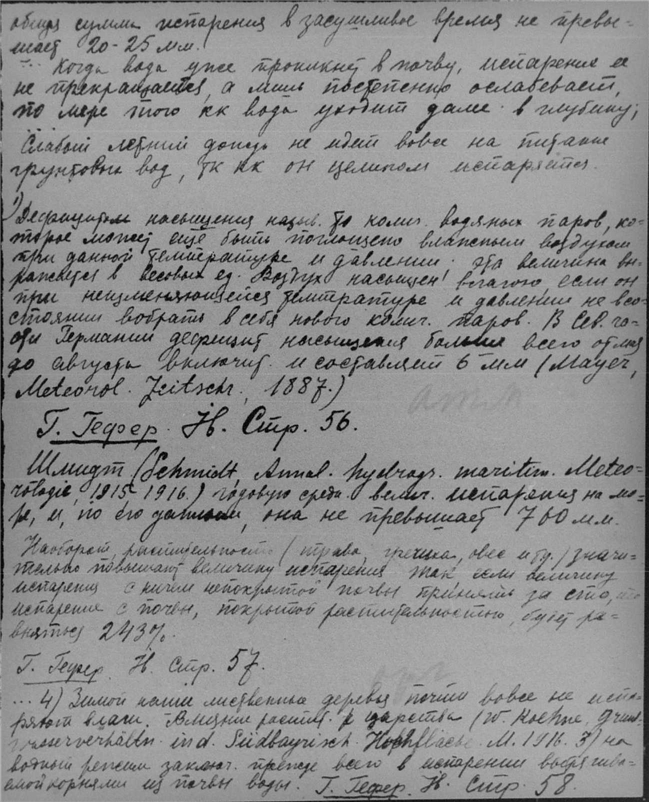 общая сумма испарения в засушливое время не превы=
шает 20-25 мм.
... Когда вода уже проникнет в почву, испарение ее
не прекращается, а лишь постепенно ослабевает,
по мере того кк вода уходит далее в глубину;
Слабый летний дождь не идет вовсе на питание
грунтовых вод, тк кк он целиком испаряется.
1) Дефицитом насыщения назыв. то колич. водяных паров, ко-
торое может ещё быть поглощено влажным воздухом
при данной температуре и давлении. Эта величина вы-
ражается в весовых ед. Воздух насыщен влагою, если он
при неизменяющейся температуре и давлении не в со-
стоянии вобрать в себя нового колич. паров. В Сев. за-
Германии дефицит насыщения больше всего от мая
до августа включит. и составляет 6 мм (Mayer,
Meteorol. Zeitschr., 1887.)
Г. Гефер. Н. Стр. 56.
Шмидт (Schmidt, Annal. hydrogr. maritim. Meteo=
rologie, 1915-1916.) годовую средн. велич. испарения на мо=
ре, и, по его данным, она не превышает 760 мм.
Наоборот, растительность (трава, гречиха, овес и др.) значи-
тельно повышает величину испарения. Так если величину
испарения с ничем непокрытой почвы принять за сто, то
испарение с почвы, покрытой растительностью, будет ра-
вняться 243%.
Г. Гефер. Н. Стр. 57.
... 4) Зимой наши лиственные деревья почти вовсе не испа-
ряют влаги. Влияние растит. царства (W. Koehne, Grund-
wasserverhältn. in d. Südbayrisch. Hochfläche. M. 1916. 3) на
водный режим заключ. прежде всего в испарении вытягива-
емой корнями из почвы воды. Г. Гефер. Н. Стр. 58.